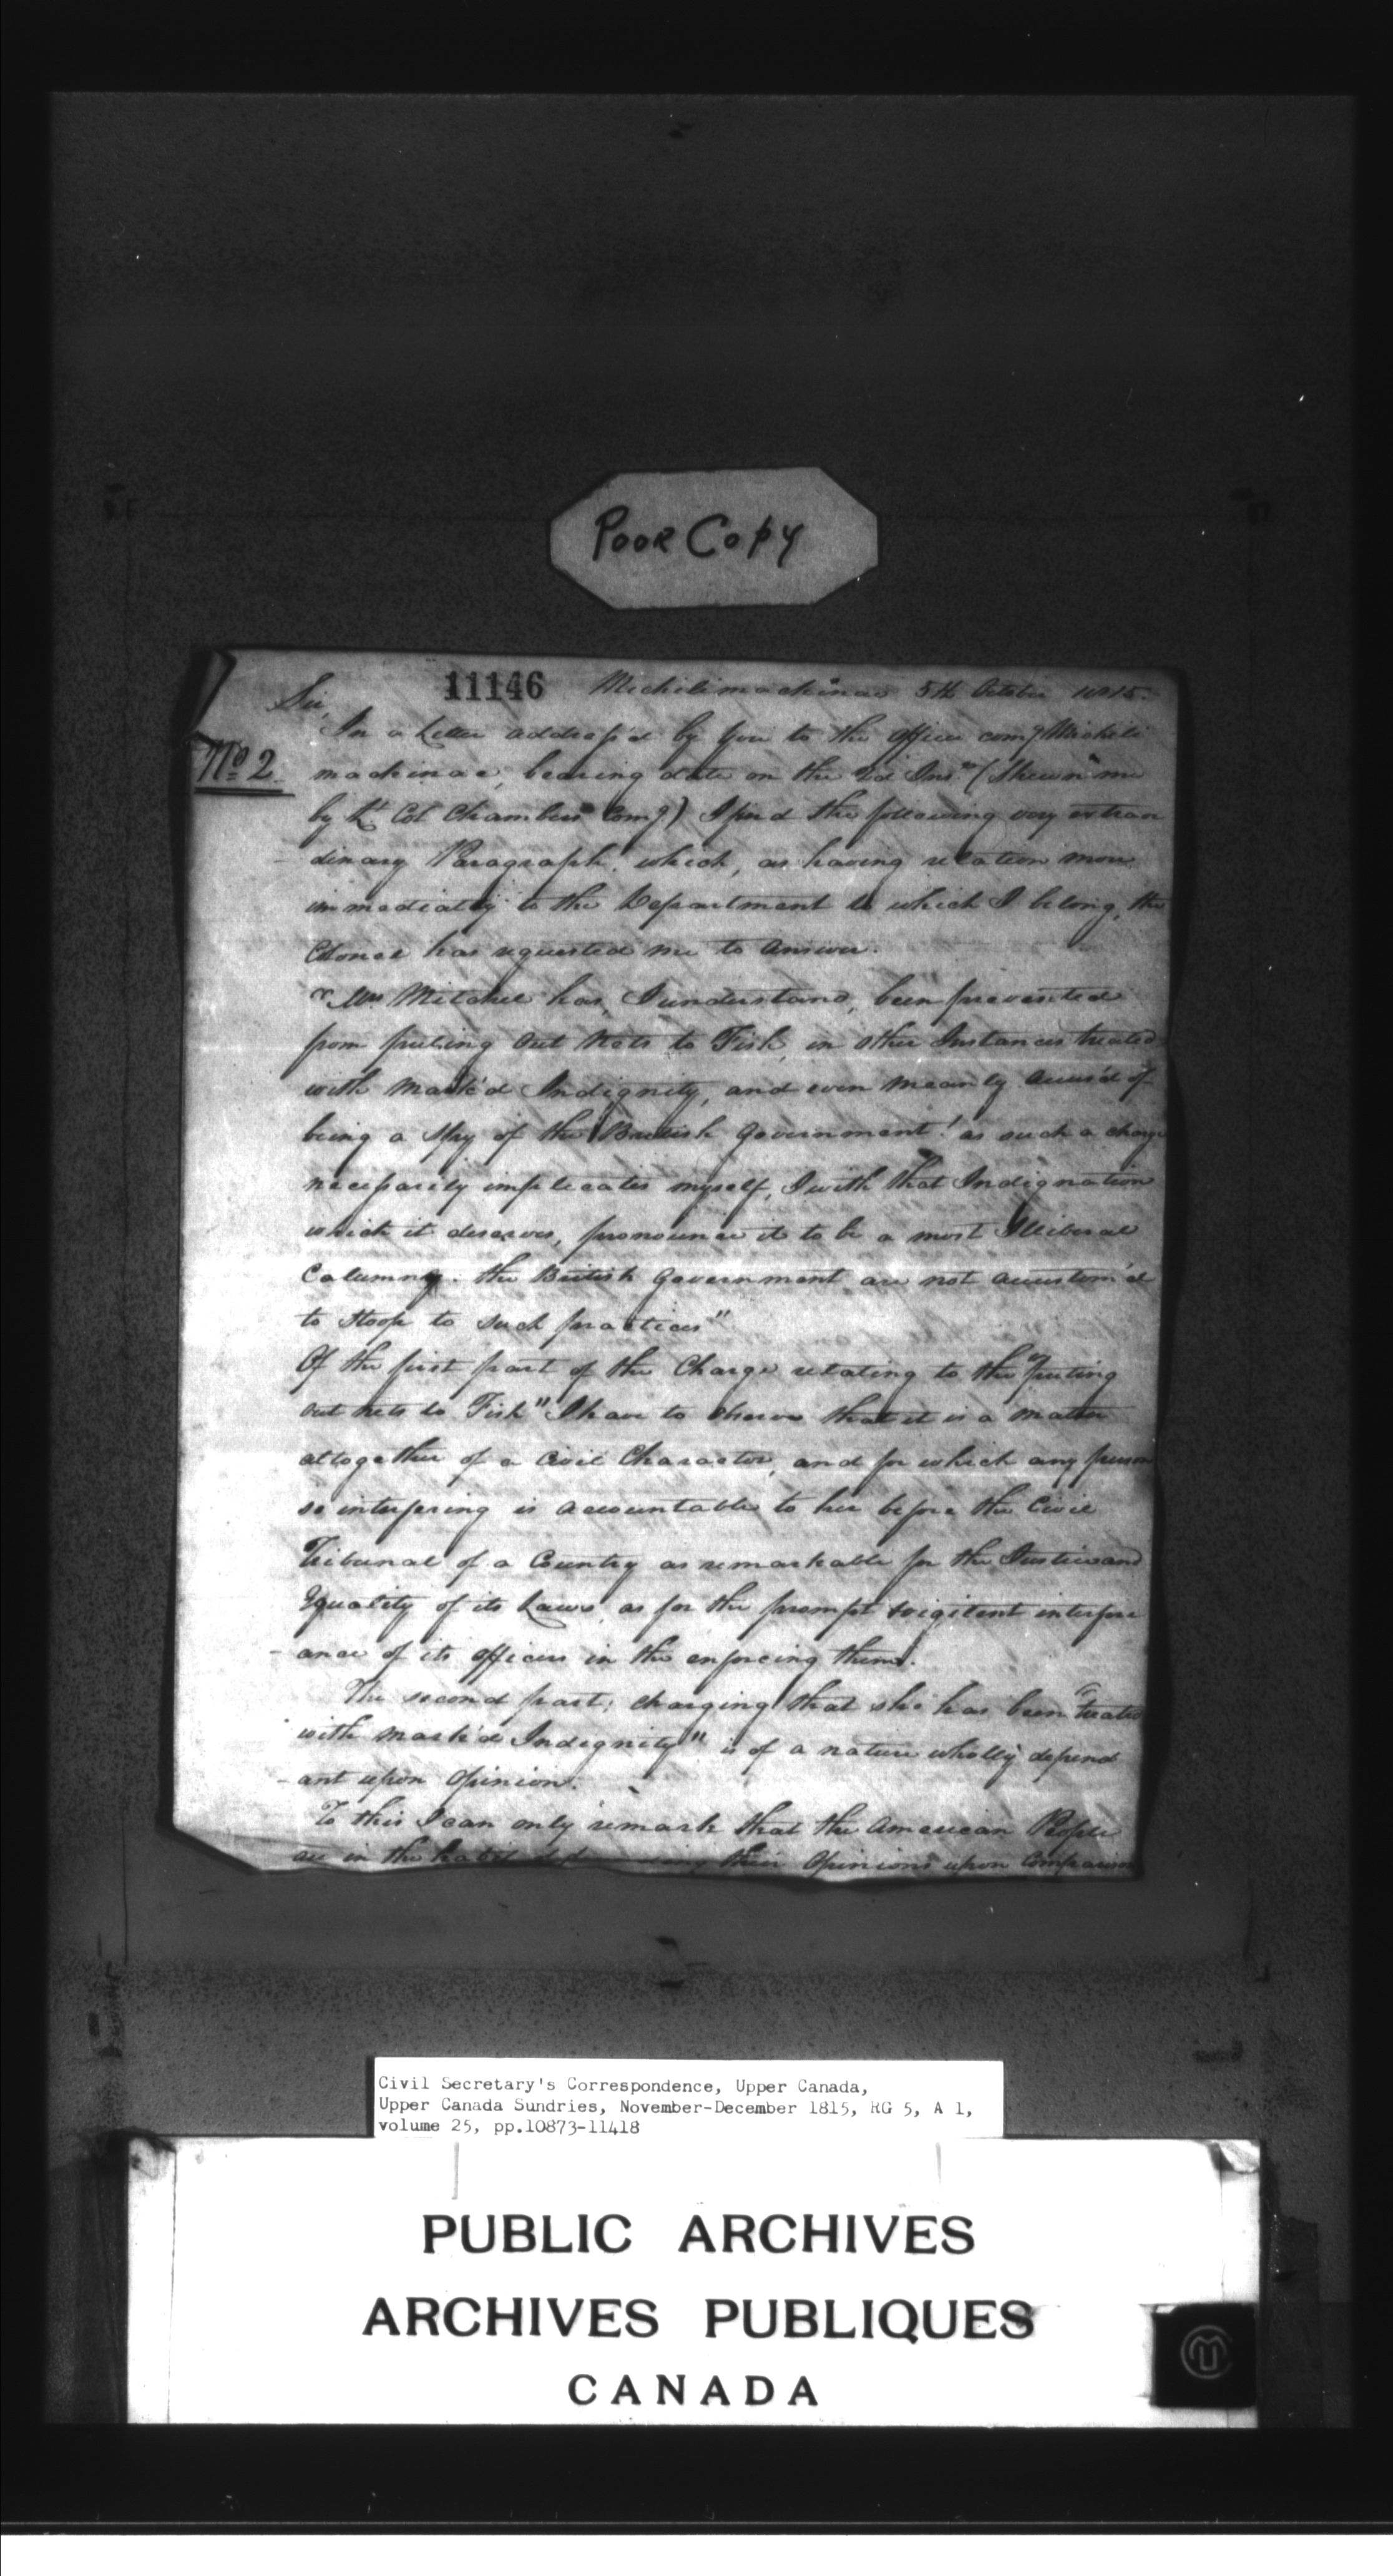 Poor Copy
11146 Michilimackinac 5th October 1815.
Sir,
In a Letter address'd by you to the officer comg Michili
No 2
mackinac, bearing date on the 2d Inst (Shewn me
by Lt Col Chambers Comg) I find the following very extraor
-dinary Paragraph, which, as having relation more
immediately to the Department to which I belong, the
Colonel has requested me to answer.
"Mrs Mitchel has, I understand, been prevented
from puting out Nets to Fish, in other Instances treated
with mark'd Indignity, and even meanly accus'd of
being a Spy of the British Government! as such a charge
necessarily implicates myself, I with that Indignation
which it deserves, pronounce it to be a most Illiberal
Calumny. the British Government are not accustom'd
to stoop to such practices"
Of the first part of the Charge relating to the "Puting
out nets to Fish" I have to observe that it is a matter
altogether of a Civil Character, and for which any person
so interfering is accountable to her before the Civil
Tribunal of a Country as remarkable for the Justice and
Equality of its Laws, as for the prompt & vigilent interfere
-ance of its officers in the enforcing them.
The second part, charging that she has been "treated
with mark'd Indignity" is of a nature wholly depend
-ant upon Opinion.
To this I can only remark that the American People
are in the habit of their Opinions upon Comparison
Civil Secretary's Correspondence, Upper Canada,
Upper Canada Sundries, November-December 1815, RG 5, A 1,
volume 25, pp.10873-11418
PUBLIC ARCHIVES
ARCHIVES PUBLIQUES
CANADA